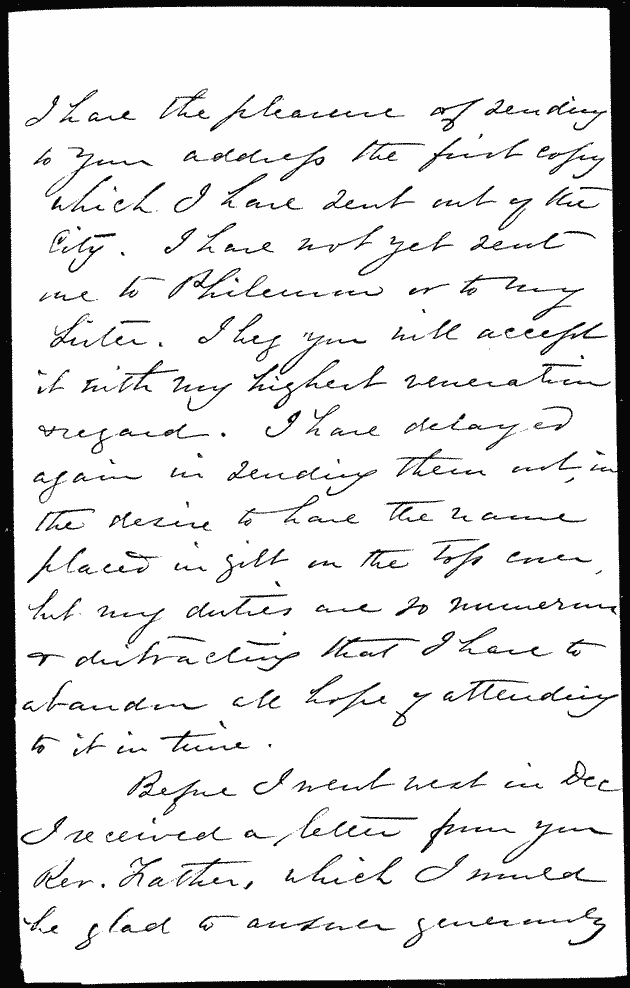 I have the pleasure of sending
to your address the first copy
which I have sent out of the
City. I have not yet sent
one to Philemon or to my
Sister. I beg you will accept
it with my highest veneration
& regard. I have delayed
again in sending them out, in
the desire to have the name
placed in gilt on the top cover,
but my duties are so numerous
& distracting that I have to
abandon all hope of attending
to it in time.
Before I went west in Dec
I received a letter from your
Rev. Father, which I would
be glad to answer generously